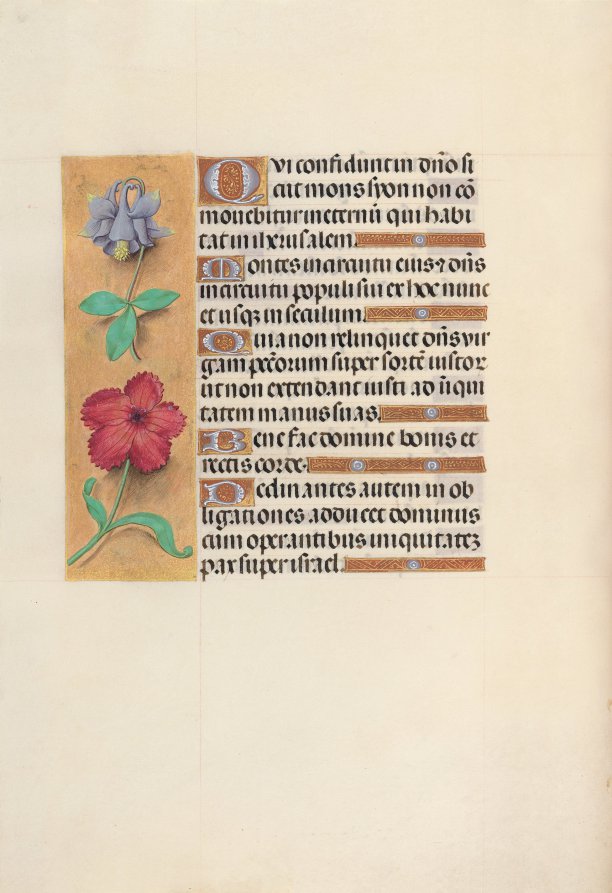 Qvi confidunt in dño si
cut mons syon non cõ
movebitur in eternũ qui habi
tat in iherusalem.
Montes in circuitu eius ⁊ dñs
in circuitu populi sui ex hoc nunc
et usqz in seculum.
Quia non relinquet dñs vir
gam pc̃orum super sortẽ iustor
ut non extendant iusti ad iĩqui
tatem manus suas.
Benefac domine bonis et
rectis corde.
Declinantes autem in ob
ligationes adducet dominus
cum operantibus iniquitatez
pax super israel.